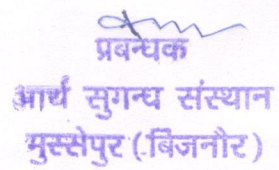 प्रबन्धक
आर्य सुगन्ध संस्थान
मुस्सेपुर (बिजनौर)